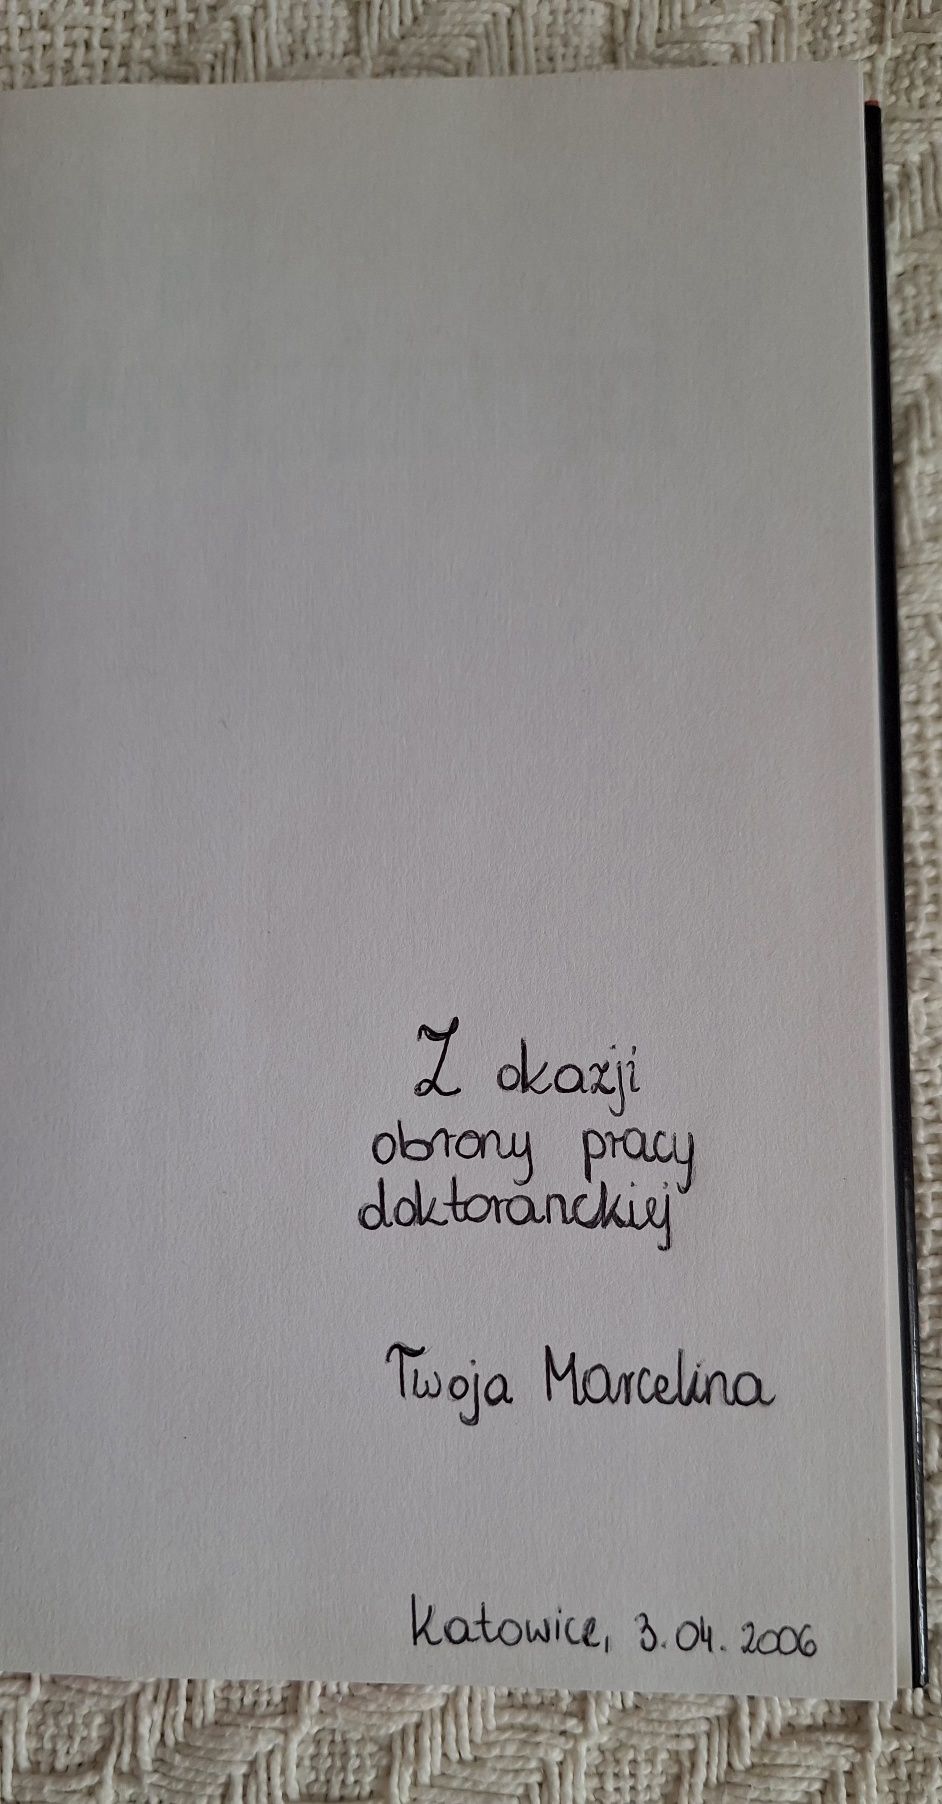 Z okazji
obrony pracy
doktoranckiej
Twoja Marcelina
Katowice, 3.04.2006